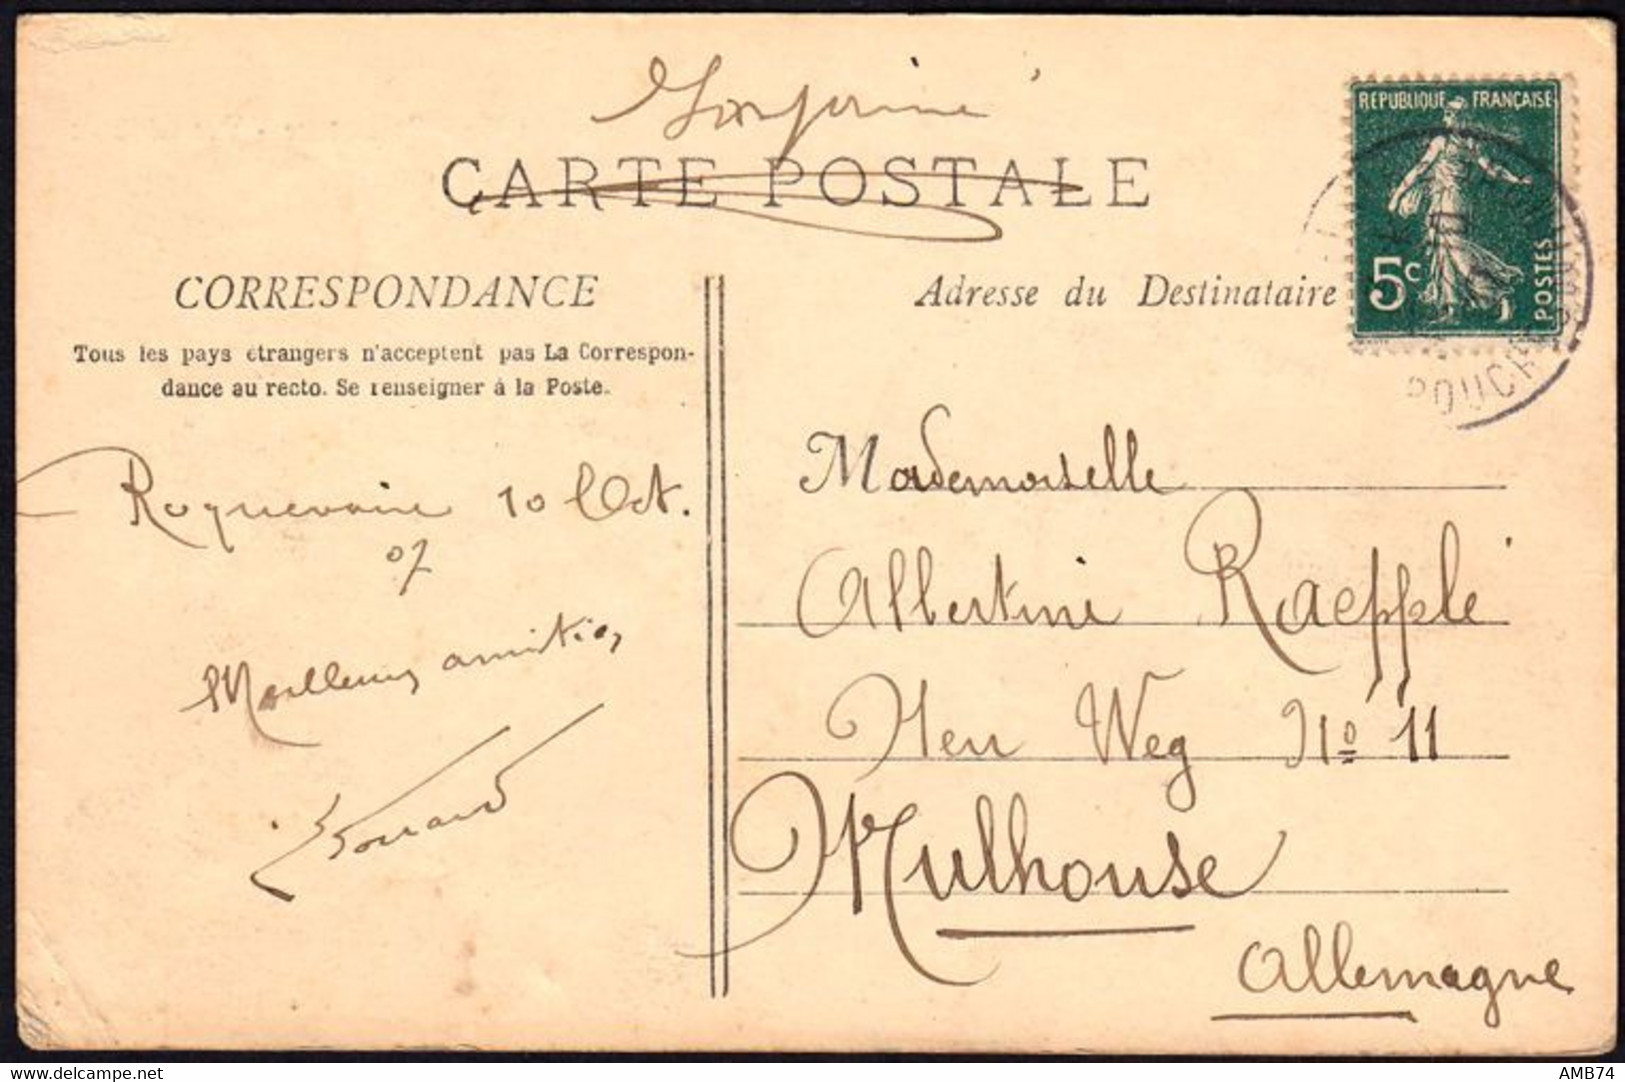 Imprimé
CARTE POSTALE
RÉPUBLIQUE FRANÇAISE
5c
POSTES
CORRESPONDANCE
Tous les pays étrangers n'acceptent pas La Correspon-
dance au recto. Se renseigner à la Poste.
Adresse du Destinataire
Roquevaire 10 Oct.
07
Meilleures amitiés
Mademoiselle
Albertine Raepplé
Illen Weg No 11
Mulhouse
Allemagne
BOUCHES
delcampe.net
AMB74